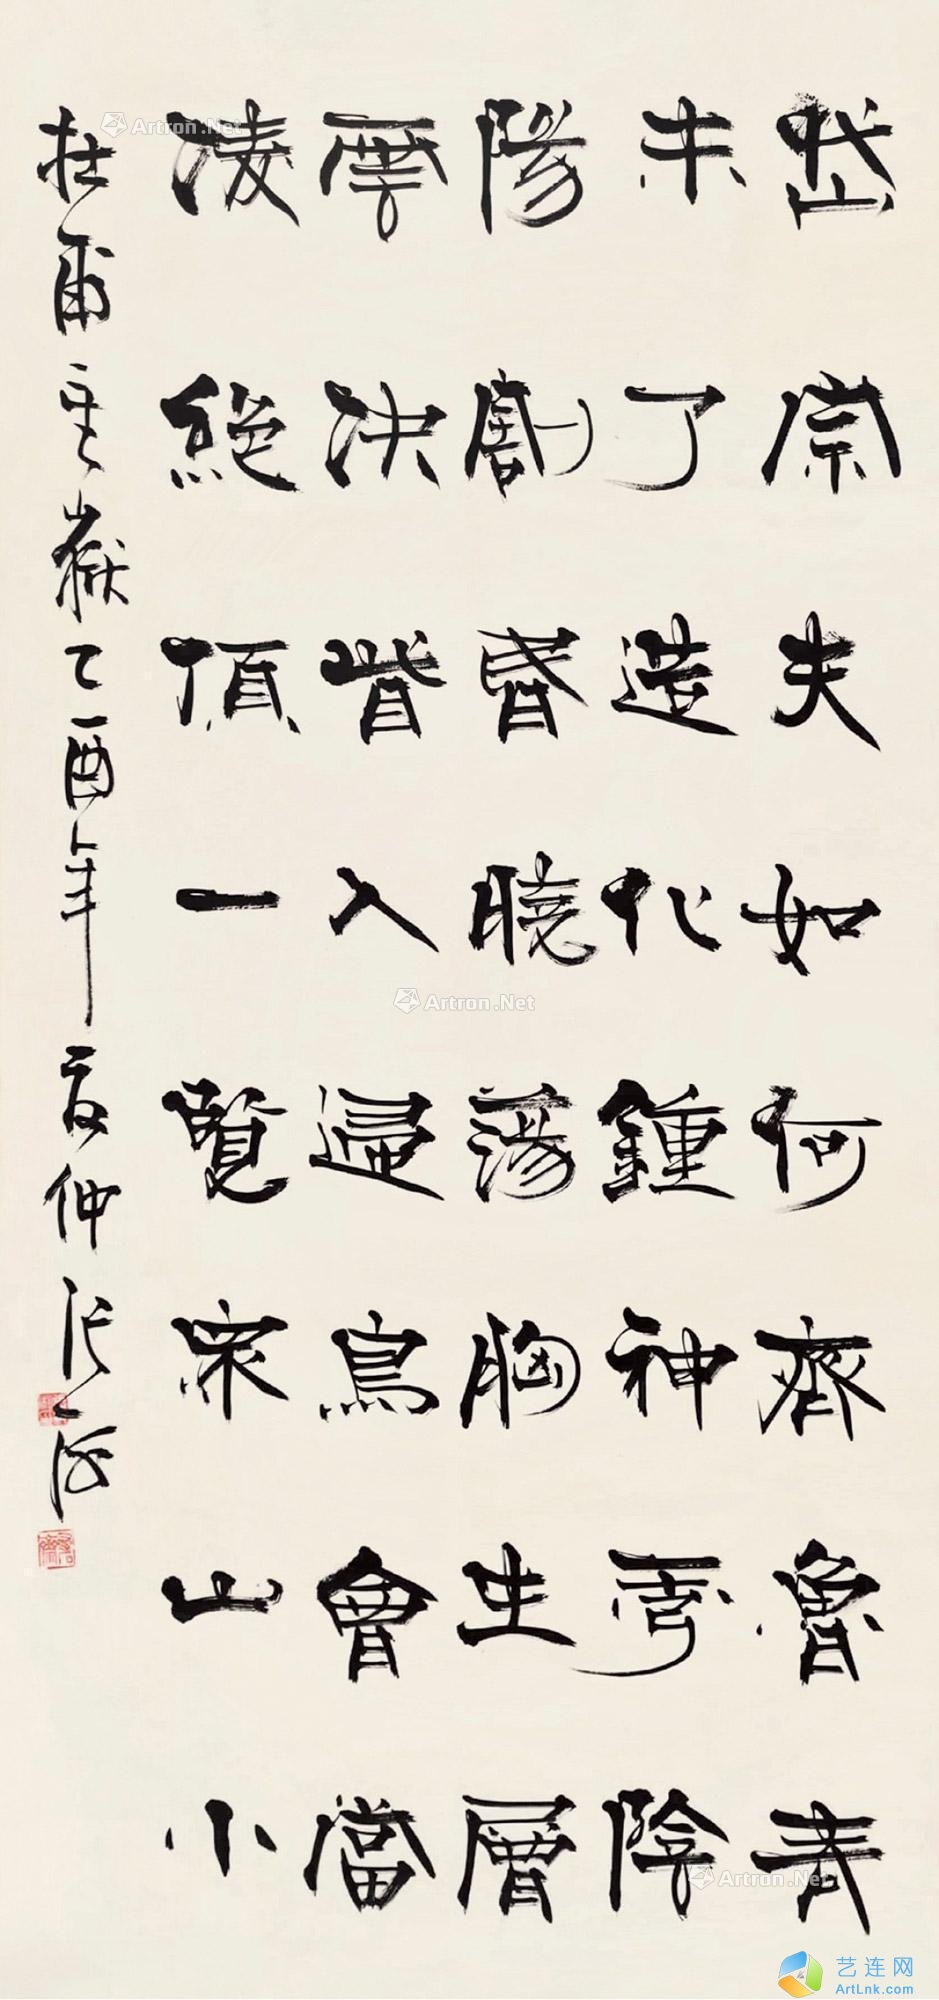 岱宗夫如何齊魯青
未了造化鍾神秀陰
陽割昏曉蕩胸生層
雲決眥入歸鳥會當
凌絕頂一覽眾山小
杜甫望嶽乙酉年夏仲張海
Artron.Net
Artron.Net
Artron.Net
Artron.Net
艺连网
ArtLnk.com